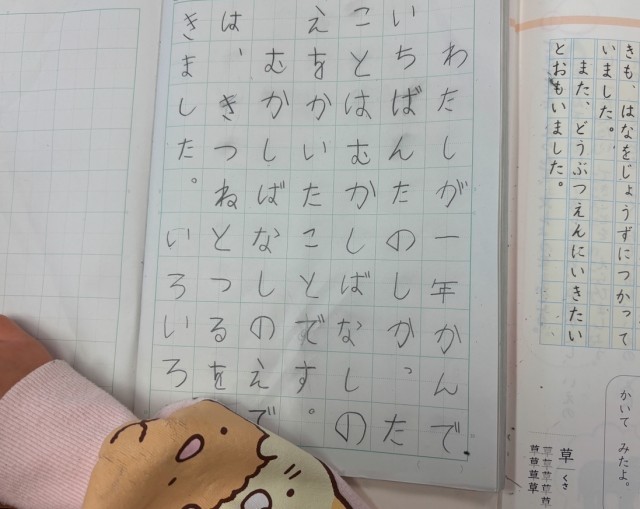 きも、はなをじょうずにつかって
いました。
また、どうぶつえんにいきたい
とおもいました。
かいて みたよ。
草 くさ
草草草草
草草草草
わたしが一年かんで
いちばんたのしかった
ことはむかしばなしの
えをかいたことです。
むかしばなしのえで
は、きつねとつるを
きました。いろいろ